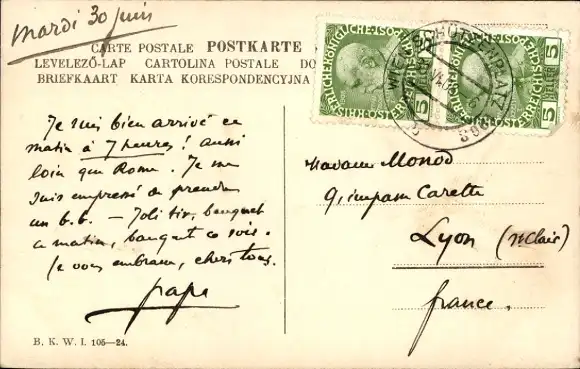 mardi 30 juin
CARTE POSTALE POSTKARTE
LEVELEZŐ-LAP CARTOLINA POSTALE DO
BRIEFKAART KARTA KORESPONDENCYJNA
Je suis bien arrivé ce
matin à 7 heures ! aussi
loin que Rome. Je me
suis empressé de prendre
un b.b. — Joli tir, banquet
ce matin, banquet ce soir.
Je vous embrasse, chers tous.
papa
B. K. W. I. 105—24.
5 HELLER 5
5 HELLER 5
WIEN SCHÜTZENPLATZ
Madame Monod
9, impasse Carette
Lyon (St Clair)
France.